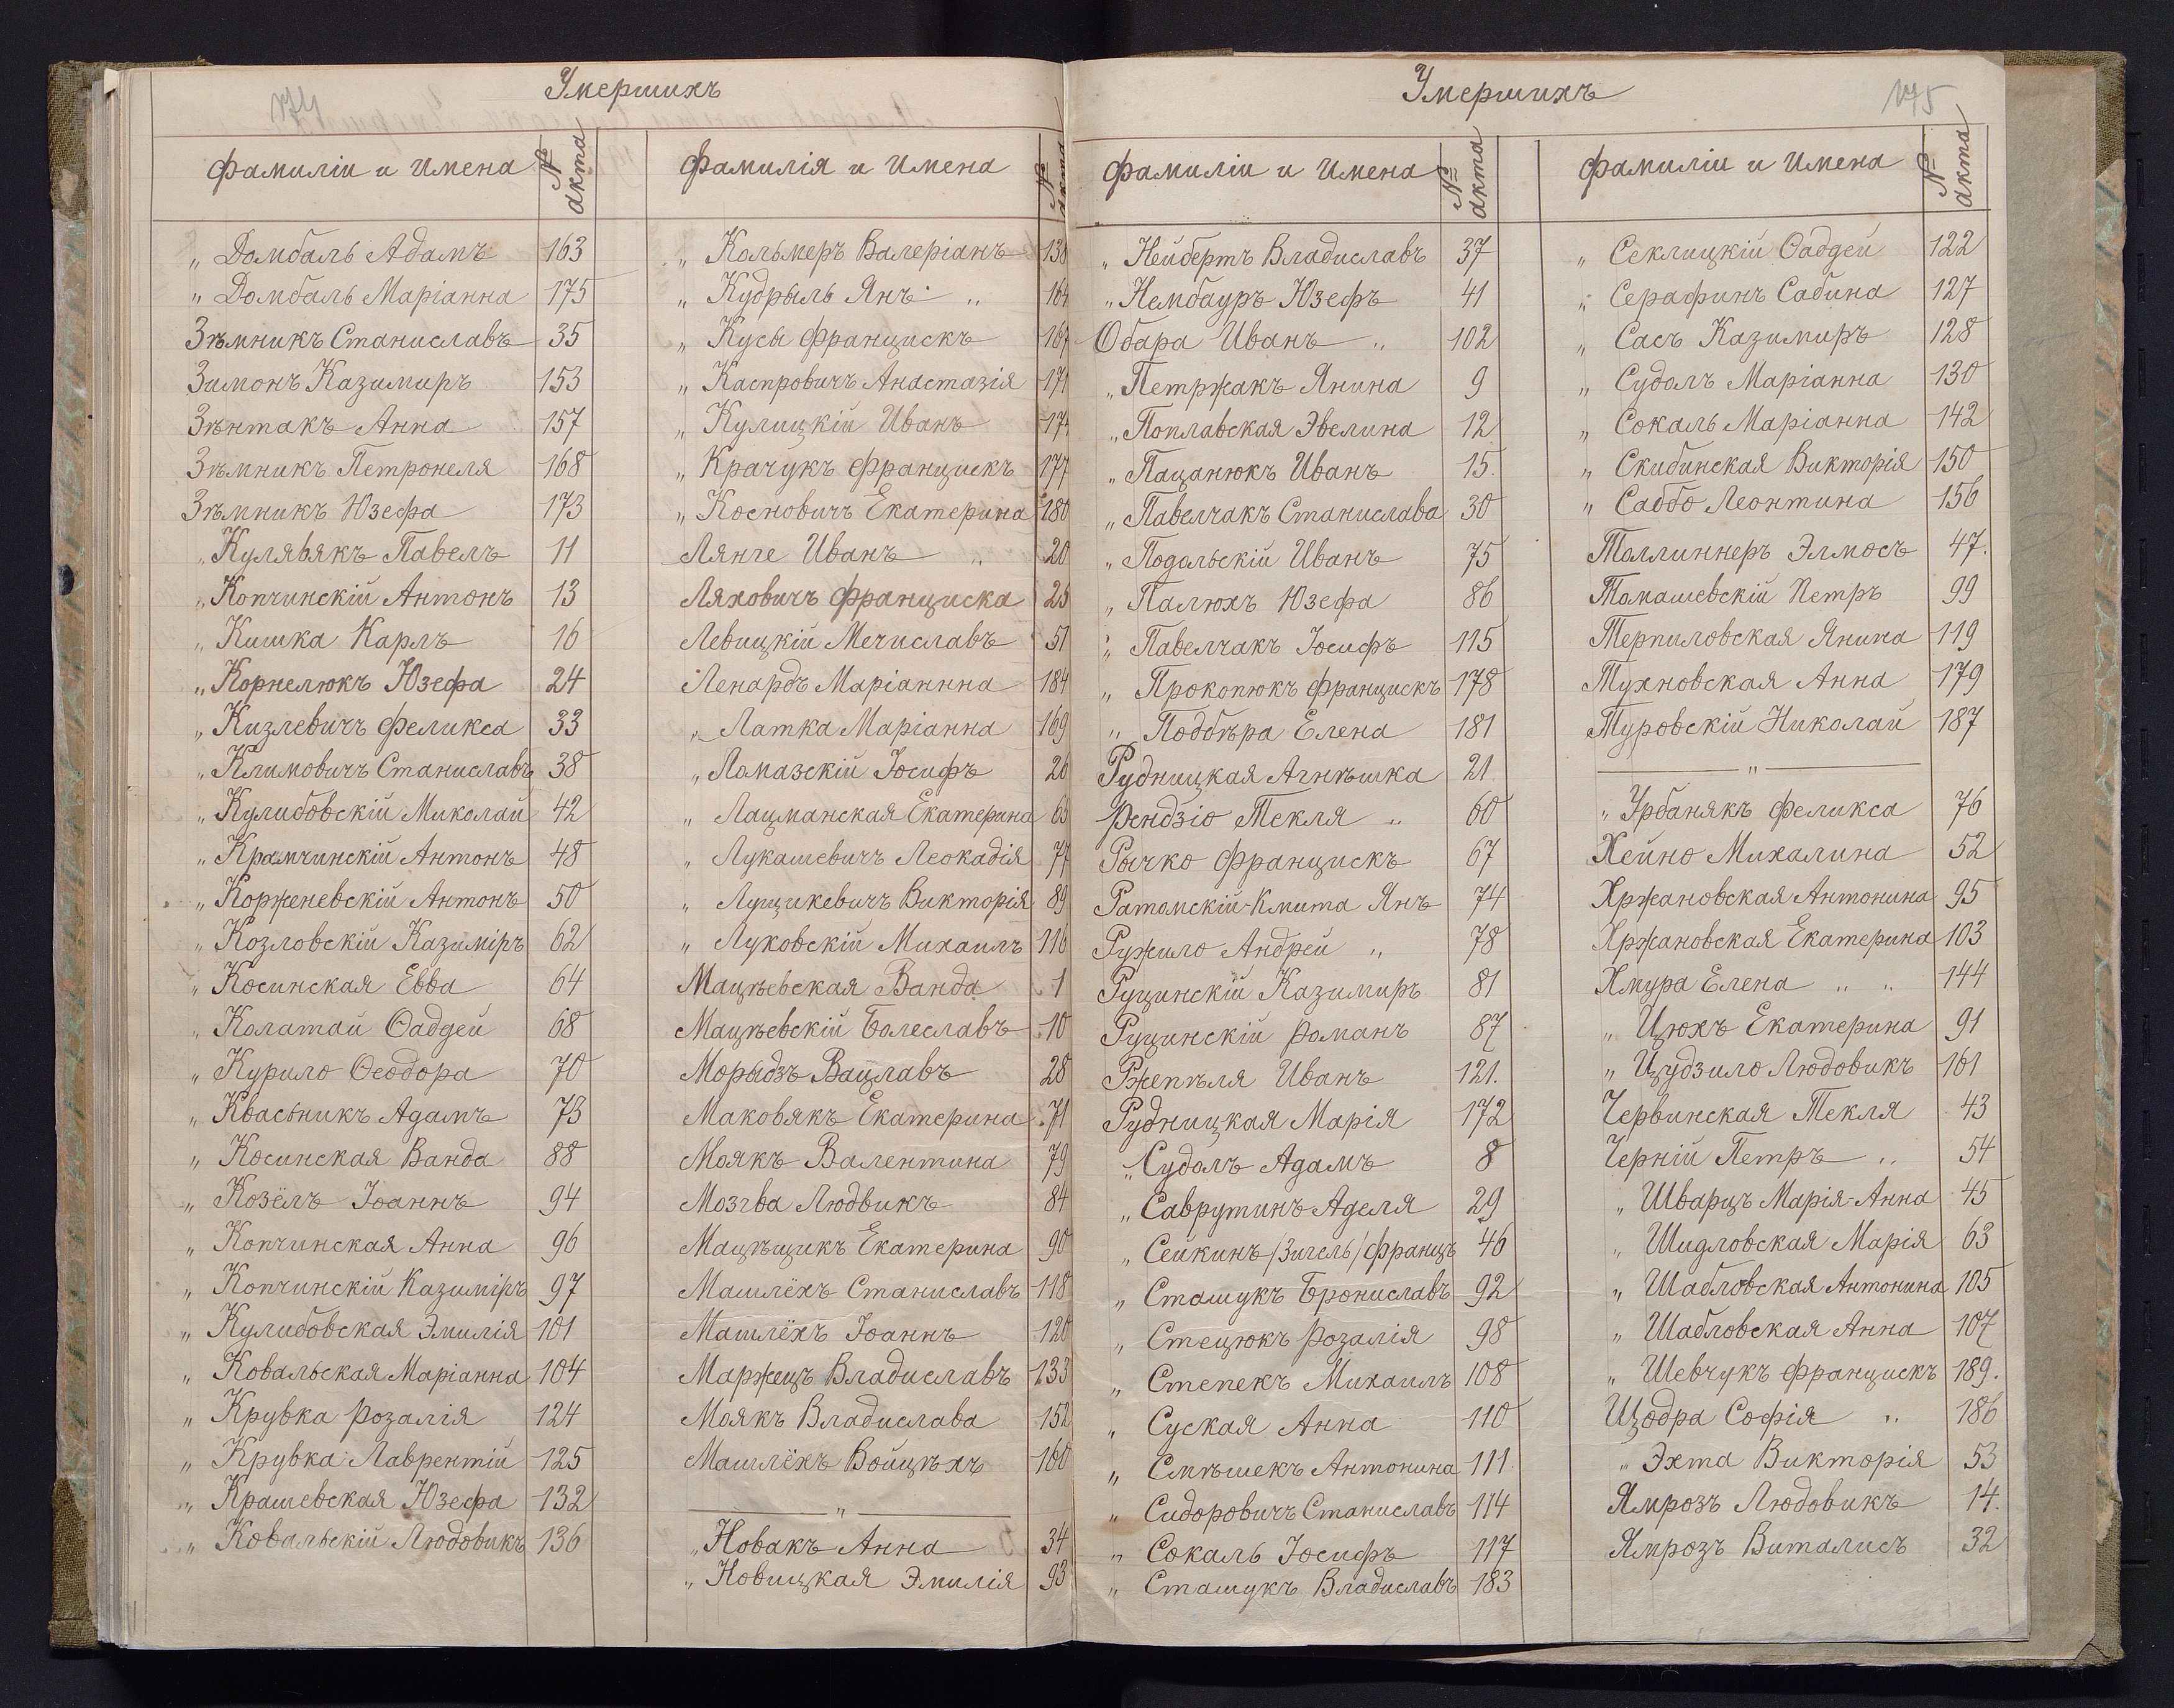 174
Умершихъ
Фамиліи и Имена № акта
„ Домбаль Адамъ 163
„ Домбаль Маріанна 175
Зѣмникъ Станиславъ 35
Зимонъ Казимиръ 153
Зѣнтакъ Анна 157
Зѣмникъ Петронеля 168
Зѣмникъ Юзефа 173
„ Кулявякъ Павелъ 11
„ Копчинскій Антонъ 13
„ Кишка Карлъ 16
„ Корнелюкъ Юзефа 24
„ Кизлевичъ Феликса 33
„ Климовичъ Станиславъ 38
„ Кулибовскій Миколай 42
„ Крамчинскій Антонъ 48
„ Корженевскій Антонъ 50
„ Козловскій Казиміръ 62
„ Косинская Евва 64
„ Колатай Ѳадѳей 68
„ Курило Ѳеодора 70
„ Квасьникъ Адамъ 73
„ Косинская Ванда 88
„ Козёлъ Іоаннъ 94
„ Копчинская Анна 96
„ Копчинскій Казиміръ 97
„ Кулибовская Эмилія 101
„ Ковальская Маріанна 104
„ Крувка Розалія 124
„ Крувка Лаврентій 125
„ Крашевская Юзефа 132
„ Ковальскій Людовикъ 136
Фамилія и Имена № акта
„ Кольмеръ Валеріанъ 138
„ Кудрыль Янъ „ 164
„ Кусы Францискъ 167
„ Каспровичъ Анастазія 171
„ Кулицкій Иванъ 174
„ Крачукъ Францискъ 177
„ Косновичъ Екатерина 180
Лянге Иванъ „ 20
Ляховичъ Франциска 25
Левицкій Мечиславъ 51
Ленардъ Маріаннна 184
„ Латка Маріанна 169
„ Ломазскій Іосифъ 26
„ Лацманская Екатерина 65
„ Лукашевичъ Леокадія 77
„ Лущикевичъ Викторія 89
„ Луковскій Михаилъ 116
Мацѣевская Ванда 1
Мацѣевскій Болеславъ 10
Морыдзъ Вацлавъ 28
Маковякъ Екатерина 71
Моякъ Валентина 79
Мозгва Людвикъ 84
Мацѣщикъ Екатерина 90
Машлёхъ Станиславъ 118
Машлёхъ Іоаннъ 120
Маржецъ Владиславъ 133
Моякъ Владислава 152
Машлёхъ Войцѣхъ 160
„
„ Новакъ Анна 34
„ Новицкая Эмилія 93
175
Умершихъ
Фамиліи и Имена № акта
„ Нейбертъ Владиславъ 37
„ Нембауръ Юзефъ 41
Обара Иванъ „ 102
„ Петржакъ Янина 9
„ Поплавская Эвелина 12
„ Пацанюкъ Иванъ 15.
„ Павелчакъ Станислава 30
„ Подольскій Иванъ 75
„ Палюхъ Юзефа 86
„ Павелчакъ Іосифъ 115
„ Прокопюкъ Францискъ 178
„ Поддѣра Елена 181
Рудницкая Агнѣшка 21
Рендзіо Текля „ 60
Рычко Францискъ 67
Ратомскій-Кмита Янъ 74
Ружило Андрей „ 78
Руцинскій Казимиръ 81
Руцинскій Романъ 87
Ржепѣля Иванъ 121.
Рудницкая Марія 172
„ Судолъ Адамъ 8
„ Саврутинъ Аделя 29
„ Сейкинъ /Зигель/ Францъ 46
„ Сташукъ Брониславъ 92
„ Стецюкъ Розалія 98
„ Степекъ Михаилъ 108
„ Суская Анна 110
„ Смѣшекъ Антонина 111.
„ Сидоровичъ Станиславъ 114
„ Сокаль Іосифъ 117
„ Сташукъ Владиславъ 183
Фамиліи и Имена № акта
„ Секлицкій Ѳадѳей 122
„ Серафинъ Сабина 127
„ Сасъ Казимиръ 128
„ Судолъ Маріанна 130
„ Сокаль Маріанна 142
„ Скибинская Викторія 150
„ Саббо Леонтина 156
Толлиннеръ Элмосъ 47.
Томашевскій Петръ 99
Терпиловская Янина 119
Тухновская Анна 179
Туровскій Николай 187
„
„ Урбанякъ Феликса 76
Хейно Михалина 52
Хржановская Антонина 95
Хржановская Екатерина 103
Хмура Елена „ „ 144
„ Цюхъ Екатерина 91
„ Цудзило Людовикъ 161
Червинская Текля 43
Черній Петръ „ 54
„ Шварцъ Марія-Анна 45
„ Шидловская Марія 63
„ Шабловская Антонина 105
„ Шабловская Анна 107
„ Шевчукъ Францискъ 189.
Щодра Софія „ 186
„ Эхта Викторія 53
Ямрозъ Людовикъ 14.
Ямрозъ Виталисъ 32